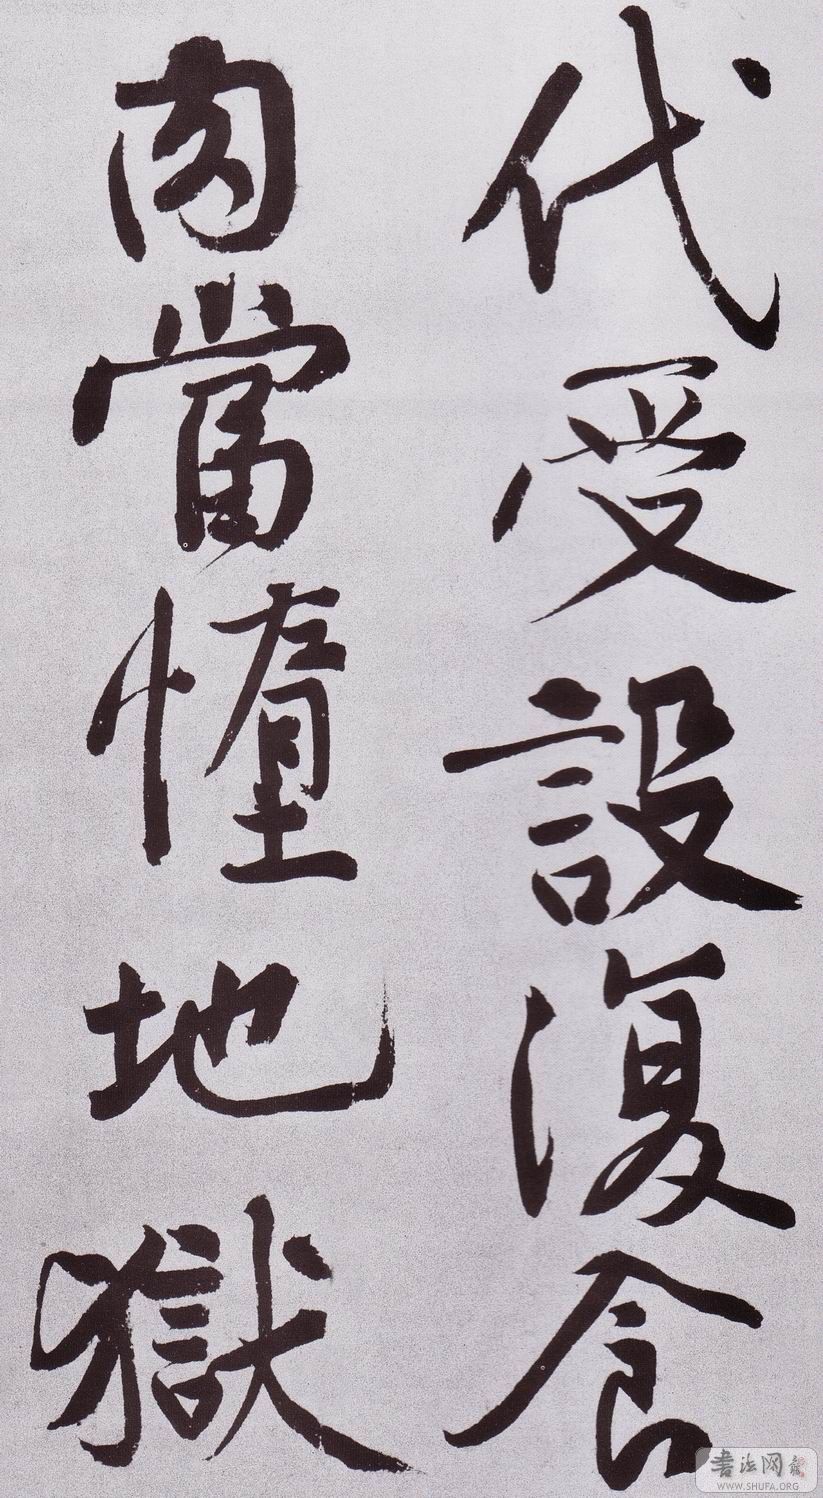 代受設復食
肉當憻地獄
書法网
WWW.SHUFA.ORG